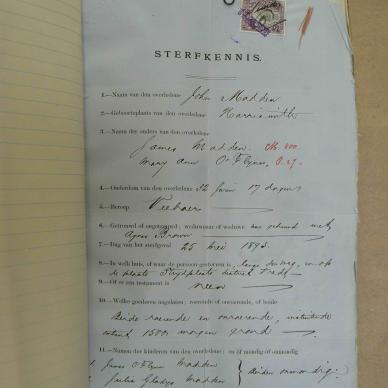 STERFKENNIS.
1.—Naam van den overledene John Madden
2.—Geboorteplaats van den overledene Harrismith
3.—Namen der ouders van den overledene
James Madden
Mary Ann O'Flynn
4.—Ouderdom van den overledene 32 jaren 17 dagen
5.—Beroep Veeboer
6.—Getrouwd of ongetrouwd; weduwnaar of weduwe was gehuwd met
Agnes Brown
7.—Dag van het sterfgeval 25 Mei 1893.
8.—In welk huis, of waar de persoon gestorven is, langs den weg, op
de plaats
9.—Of er een testament is neen
10.—Welke goederen nagelaten; roerende of onroerende, of beide
Beide roerende en onroerende,
1500 morgen grond
11.—Namen der kinderen van den overledene; en of mondig of onmondig
1. James O'Flynn Madden
Julia Gladys Madden
Beiden onmondig